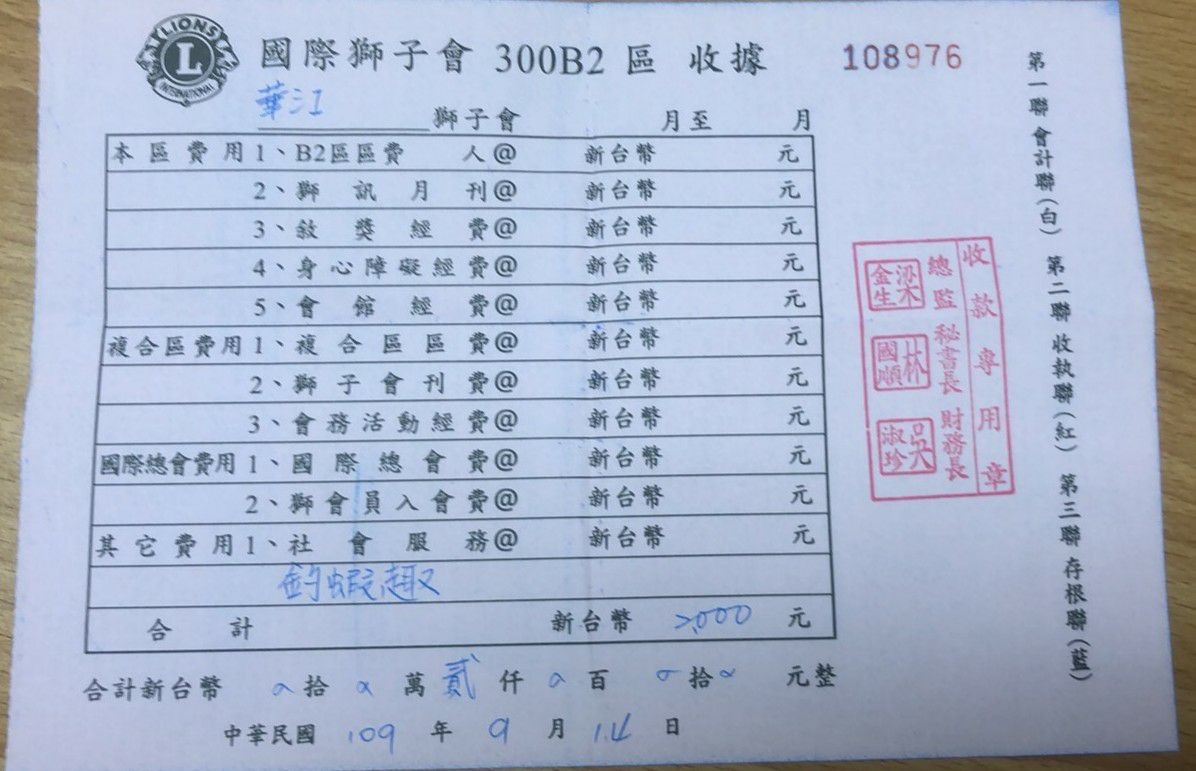 LIONS
L
INTERNATIONAL
國際獅子會 300B2 區 收據
108976
華江 獅子會 月至 月
本區費用1、B2區區費 人@ 新台幣 元
2、獅訊月刊@ 新台幣 元
3、敘獎經費@ 新台幣 元
4、身心障礙經費@ 新台幣 元
5、會館經費@ 新台幣 元
複合區費用1、複合區區費@ 新台幣 元
2、獅子會刊費@ 新台幣 元
3、會務活動經費@ 新台幣 元
國際總會費用1、國際總會費@ 新台幣 元
2、獅會員入會費@ 新台幣 元
其它費用1、社會服務@ 新台幣 元
釣蝦趣
合計 新台幣 2,000 元
合計新台幣 0拾0萬貳仟0百0拾0元整
中華民國 109 年 9 月 14 日
收款專用章
總監 梁金生
秘書長 林國順
財務長 吳淑珍
第一聯會計聯(白) 第二聯收執聯(紅) 第三聯存根聯(藍)